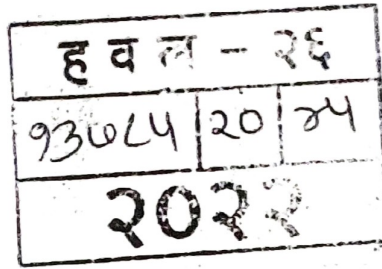 हवल - २६
१३७८५ | २० | २५
२०२२